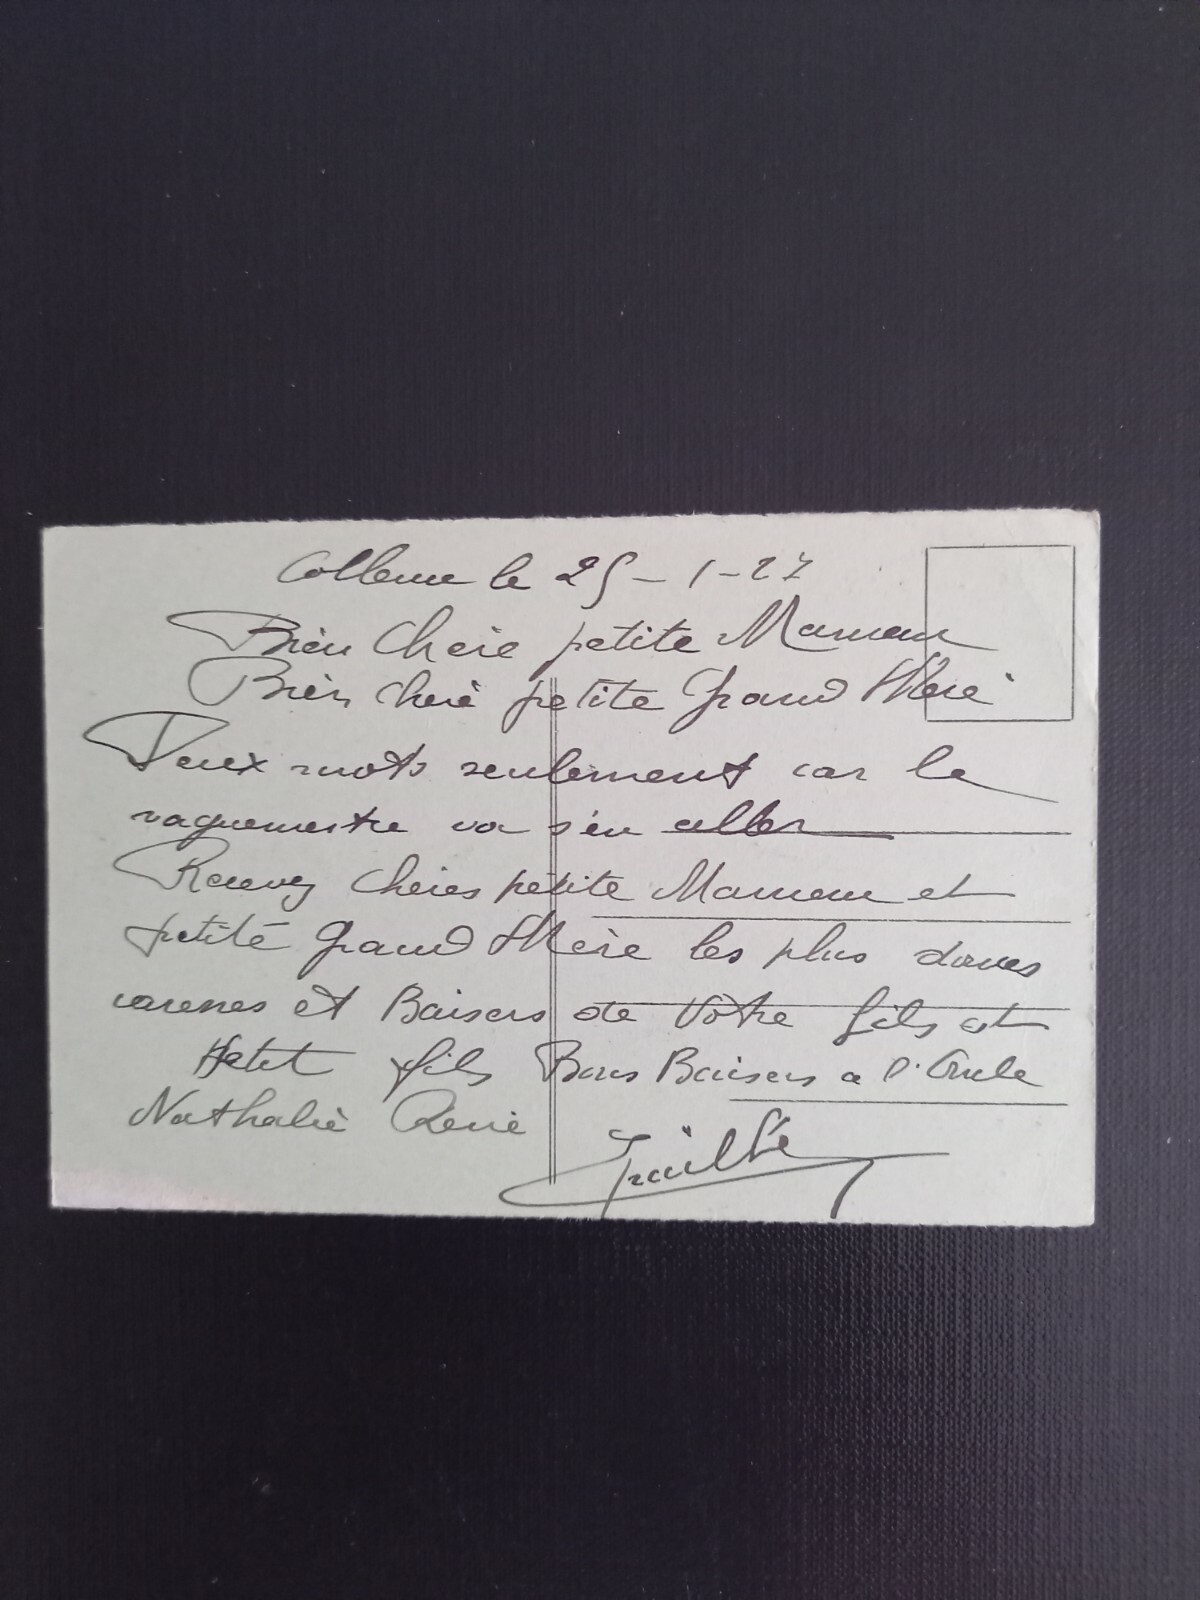 le 25-1-27
Bien Chère petite Maman
Bien Chère petite Grand Mère
Deux mots seulement car le
vaguemestre va s'en aller
Recevez Chères petite Maman et
petite Grand Mère les plus douces
caresses et Baisers de Votre fils et
Petit fils Bons Baisers a l'Oncle
Nathalie René